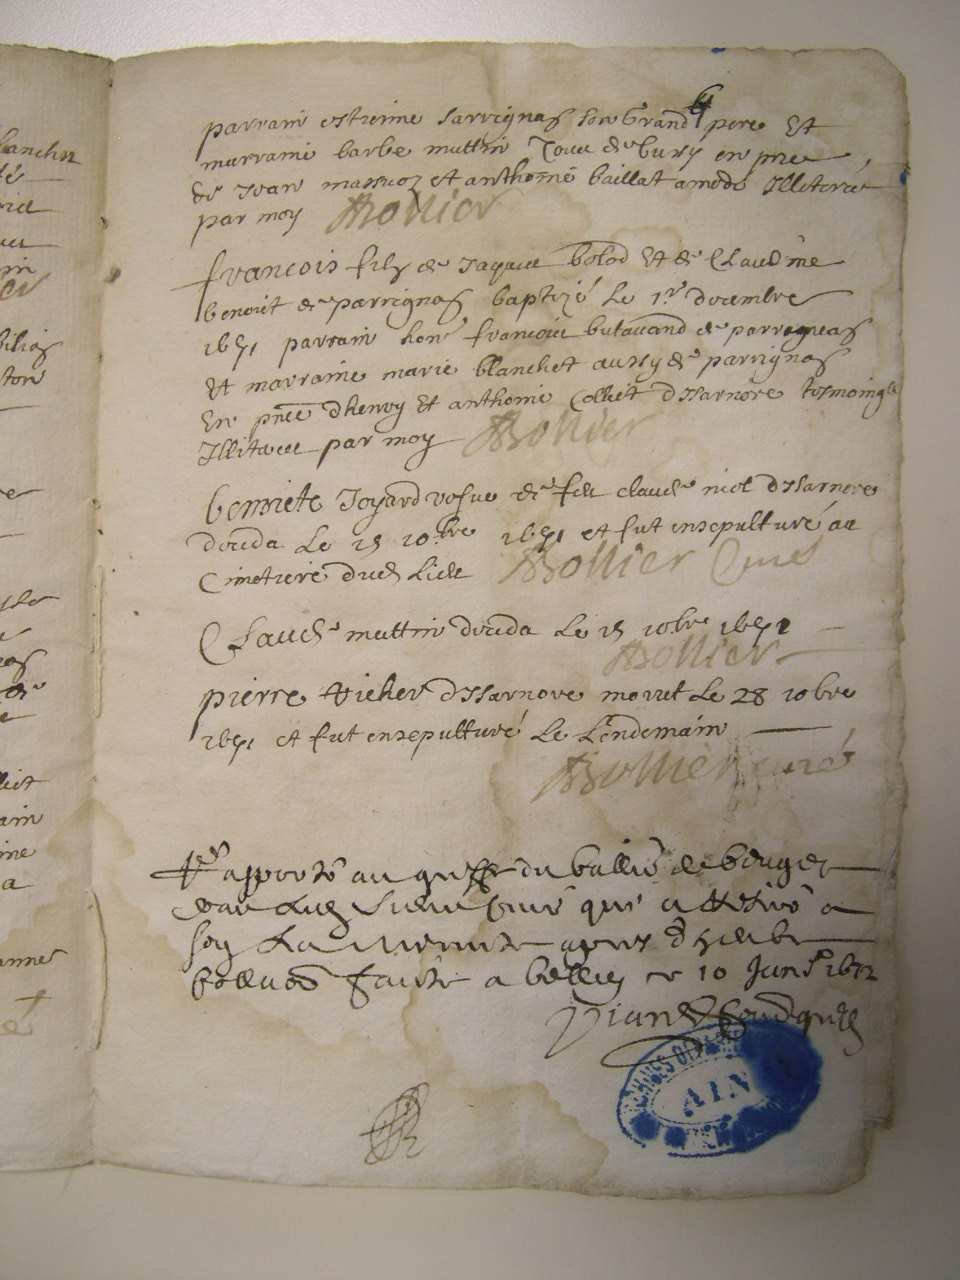 6
parrain estienne Sarrignas son Grand pere Et
marraine barbe muttin Tous de bussy en pnce
de Jean massuoz et anthoine baillat amodé Illeterés
par moy ABollier
francois fils de Jaques bolod Et de Claudine
benoit de parrignas baptizé Le 1.r decembre
1671 parrain hon.e francois butavand de parrignas
Et marraine marie blanchet aussy de parrignas
En pnce d'henry Et anthoine Colliet d'Isarnore tesmoings
Illiterés par moy ABollier
benoiete Joyard vefue de feu claude niol d'Isarnore
deceda Le 15 10.bre 1671 et fut ensepulturé au
Cimetiere dud Lieu ABollier Curé
Claude muttin deceda Le 15 10bre 1671
ABollier
pierre vieher d'Isarnore morut Le 28 10bre
1671 et fut ensepulturé Le Lendemain
ABollier curé
apporté au greffe du balliage de beugey
par led Sieur Curé qui a attesté
La Minutte apres
faicte a belley ce 10 Janv. 1672
AIN